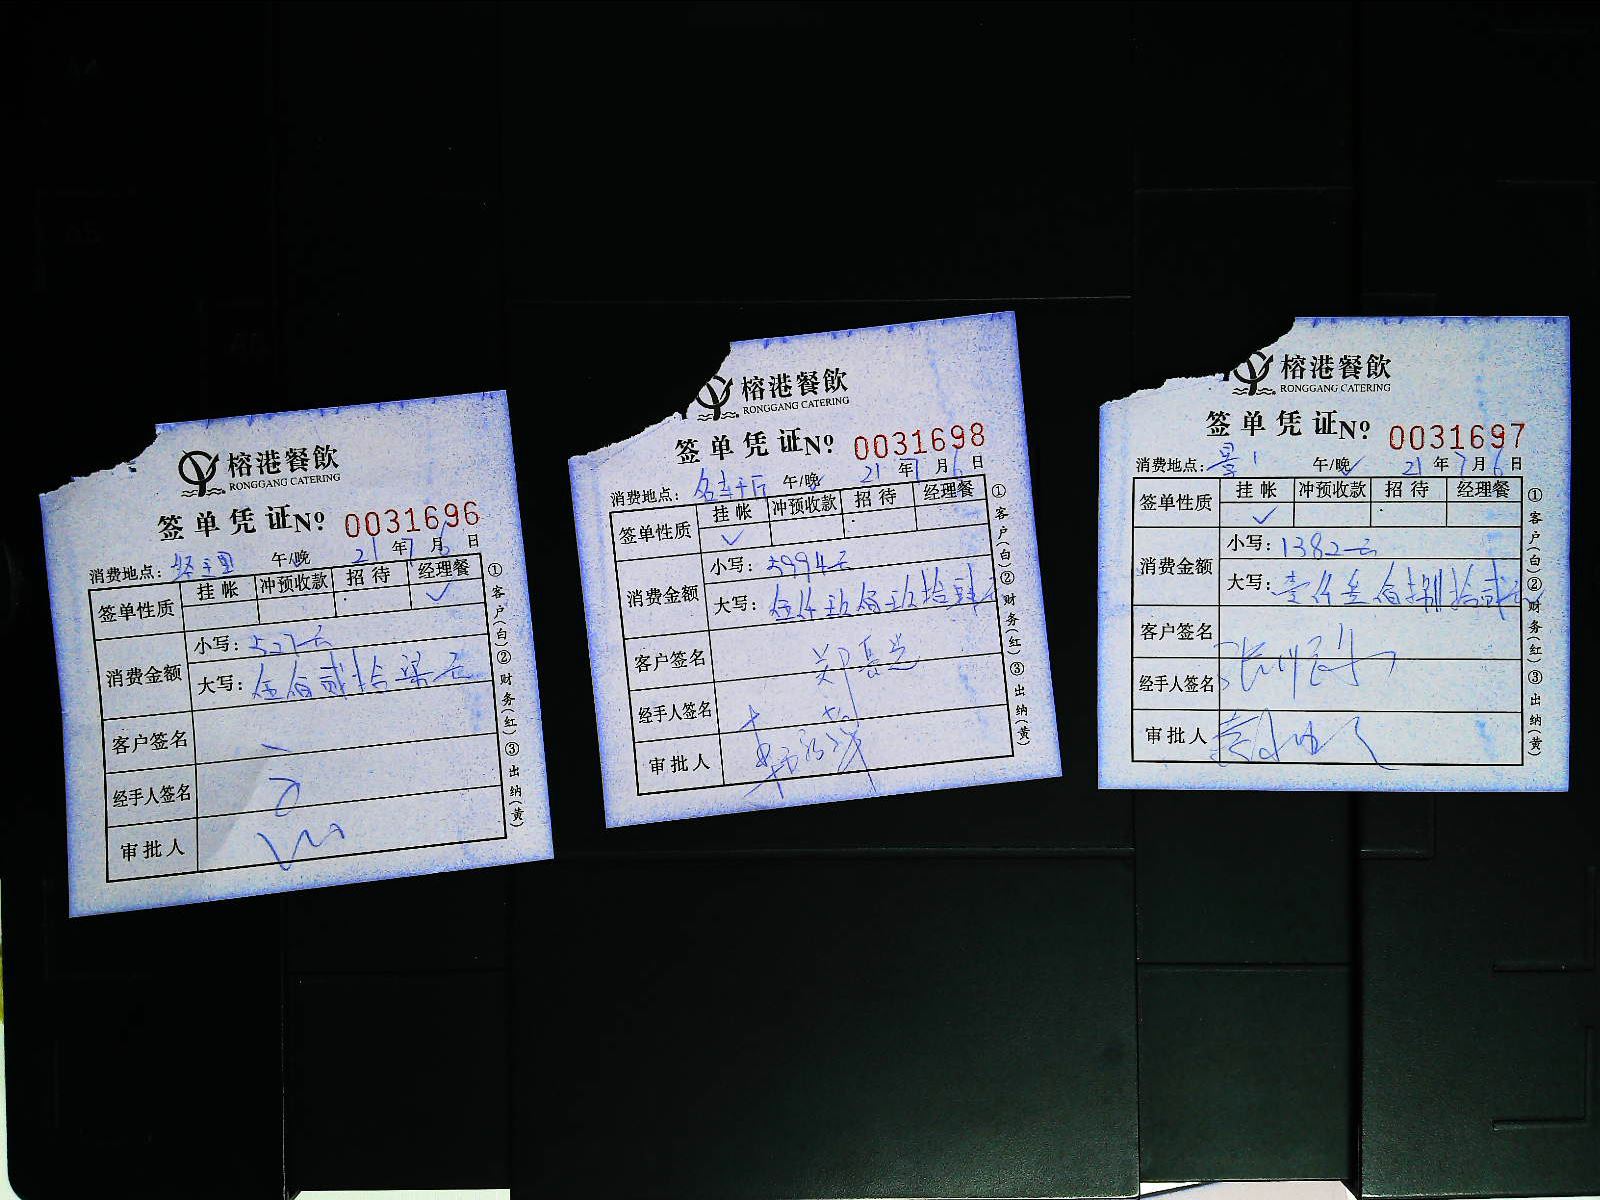 榕港餐飲
RONGGANG CATERING
签单凭证 Nº 0031696
消费地点： 午/晚 21年7月6日
签单性质 挂帐 冲预收款 招待 经理餐
✓
消费金额 小写：527元
大写：伍佰贰拾柒元
客户签名
经手人签名
审批人
①客户(白)②财务(红)③出纳(黄)
榕港餐飲
RONGGANG CATERING
签单凭证 Nº 0031698
消费地点： 午/晚 21年7月6日
签单性质 挂帐 冲预收款 招待 经理餐
✓
消费金额 小写：5994元
大写：伍仟玖佰玖拾肆元
客户签名
经手人签名
审批人
①客户(白)②财务(红)③出纳(黄)
榕港餐飲
RONGGANG CATERING
签单凭证 Nº 0031697
消费地点：景1 午/晚 21年7月6日
签单性质 挂帐 冲预收款 招待 经理餐
✓
消费金额 小写：1382元
大写：壹仟叁佰捌拾贰元
客户签名
经手人签名
审批人
①客户(白)②财务(红)③出纳(黄)